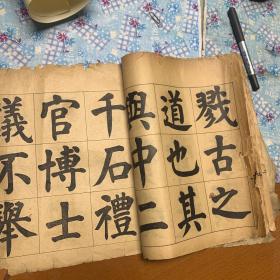 戮古之
道也其
與中二
千石禮
官博士
議不舉